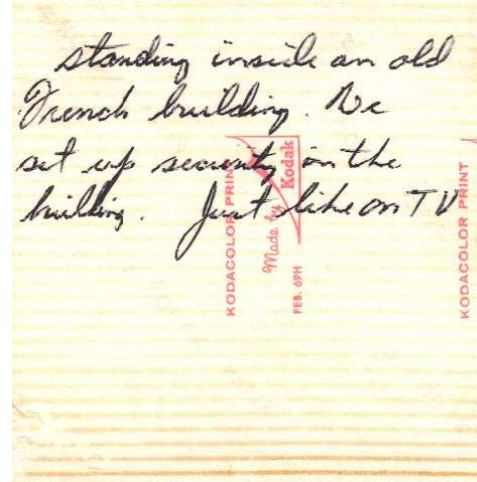 standing inside an old
French building. We
set up security in the
building. Just like on TV
KODACOLOR PRINT
Made by
Kodak
FEB. 69H
KODACOLOR PRINT